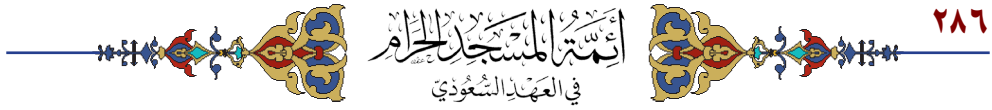 ٢٨٦
أئمة المسجد الحرام
في العهد السعودي